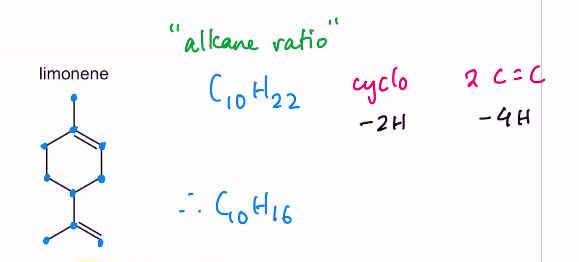 "alkane ratio"
limonene
C₁₀H₂₂ cyclo 2 C=C
-2H -4H
∴ C₁₀H₁₆